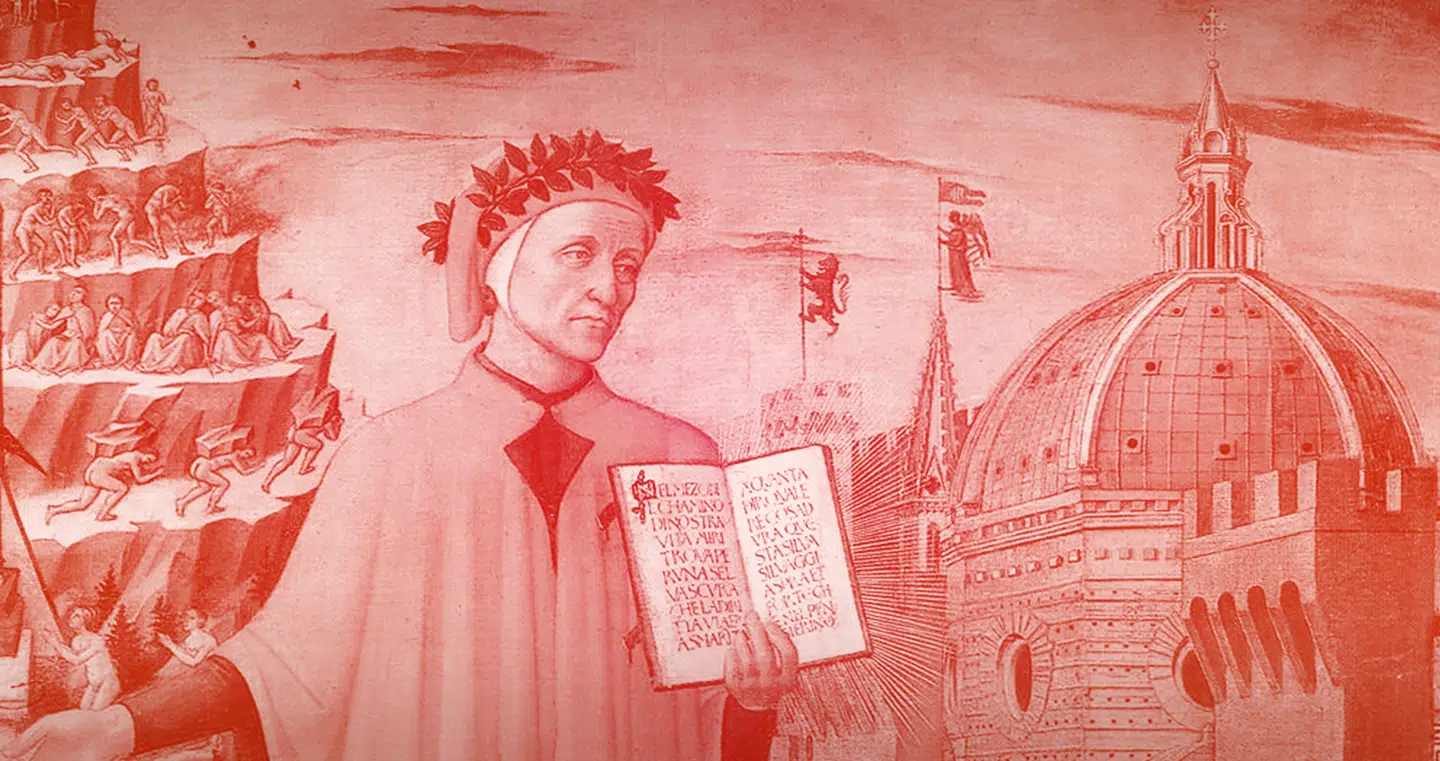 NELMEZODE
LCHAMINO
DINOSTRA
VITA MIRI
TROVAPE
RVNASEL
VASCVRA
CHELADIRI
TTAVIAER
ASMARIT
XQVANTA
DIRQVALE
RECOSAD
VRA QVE
STASILVA
SILVAGGI
ASPRAET
FORTECH